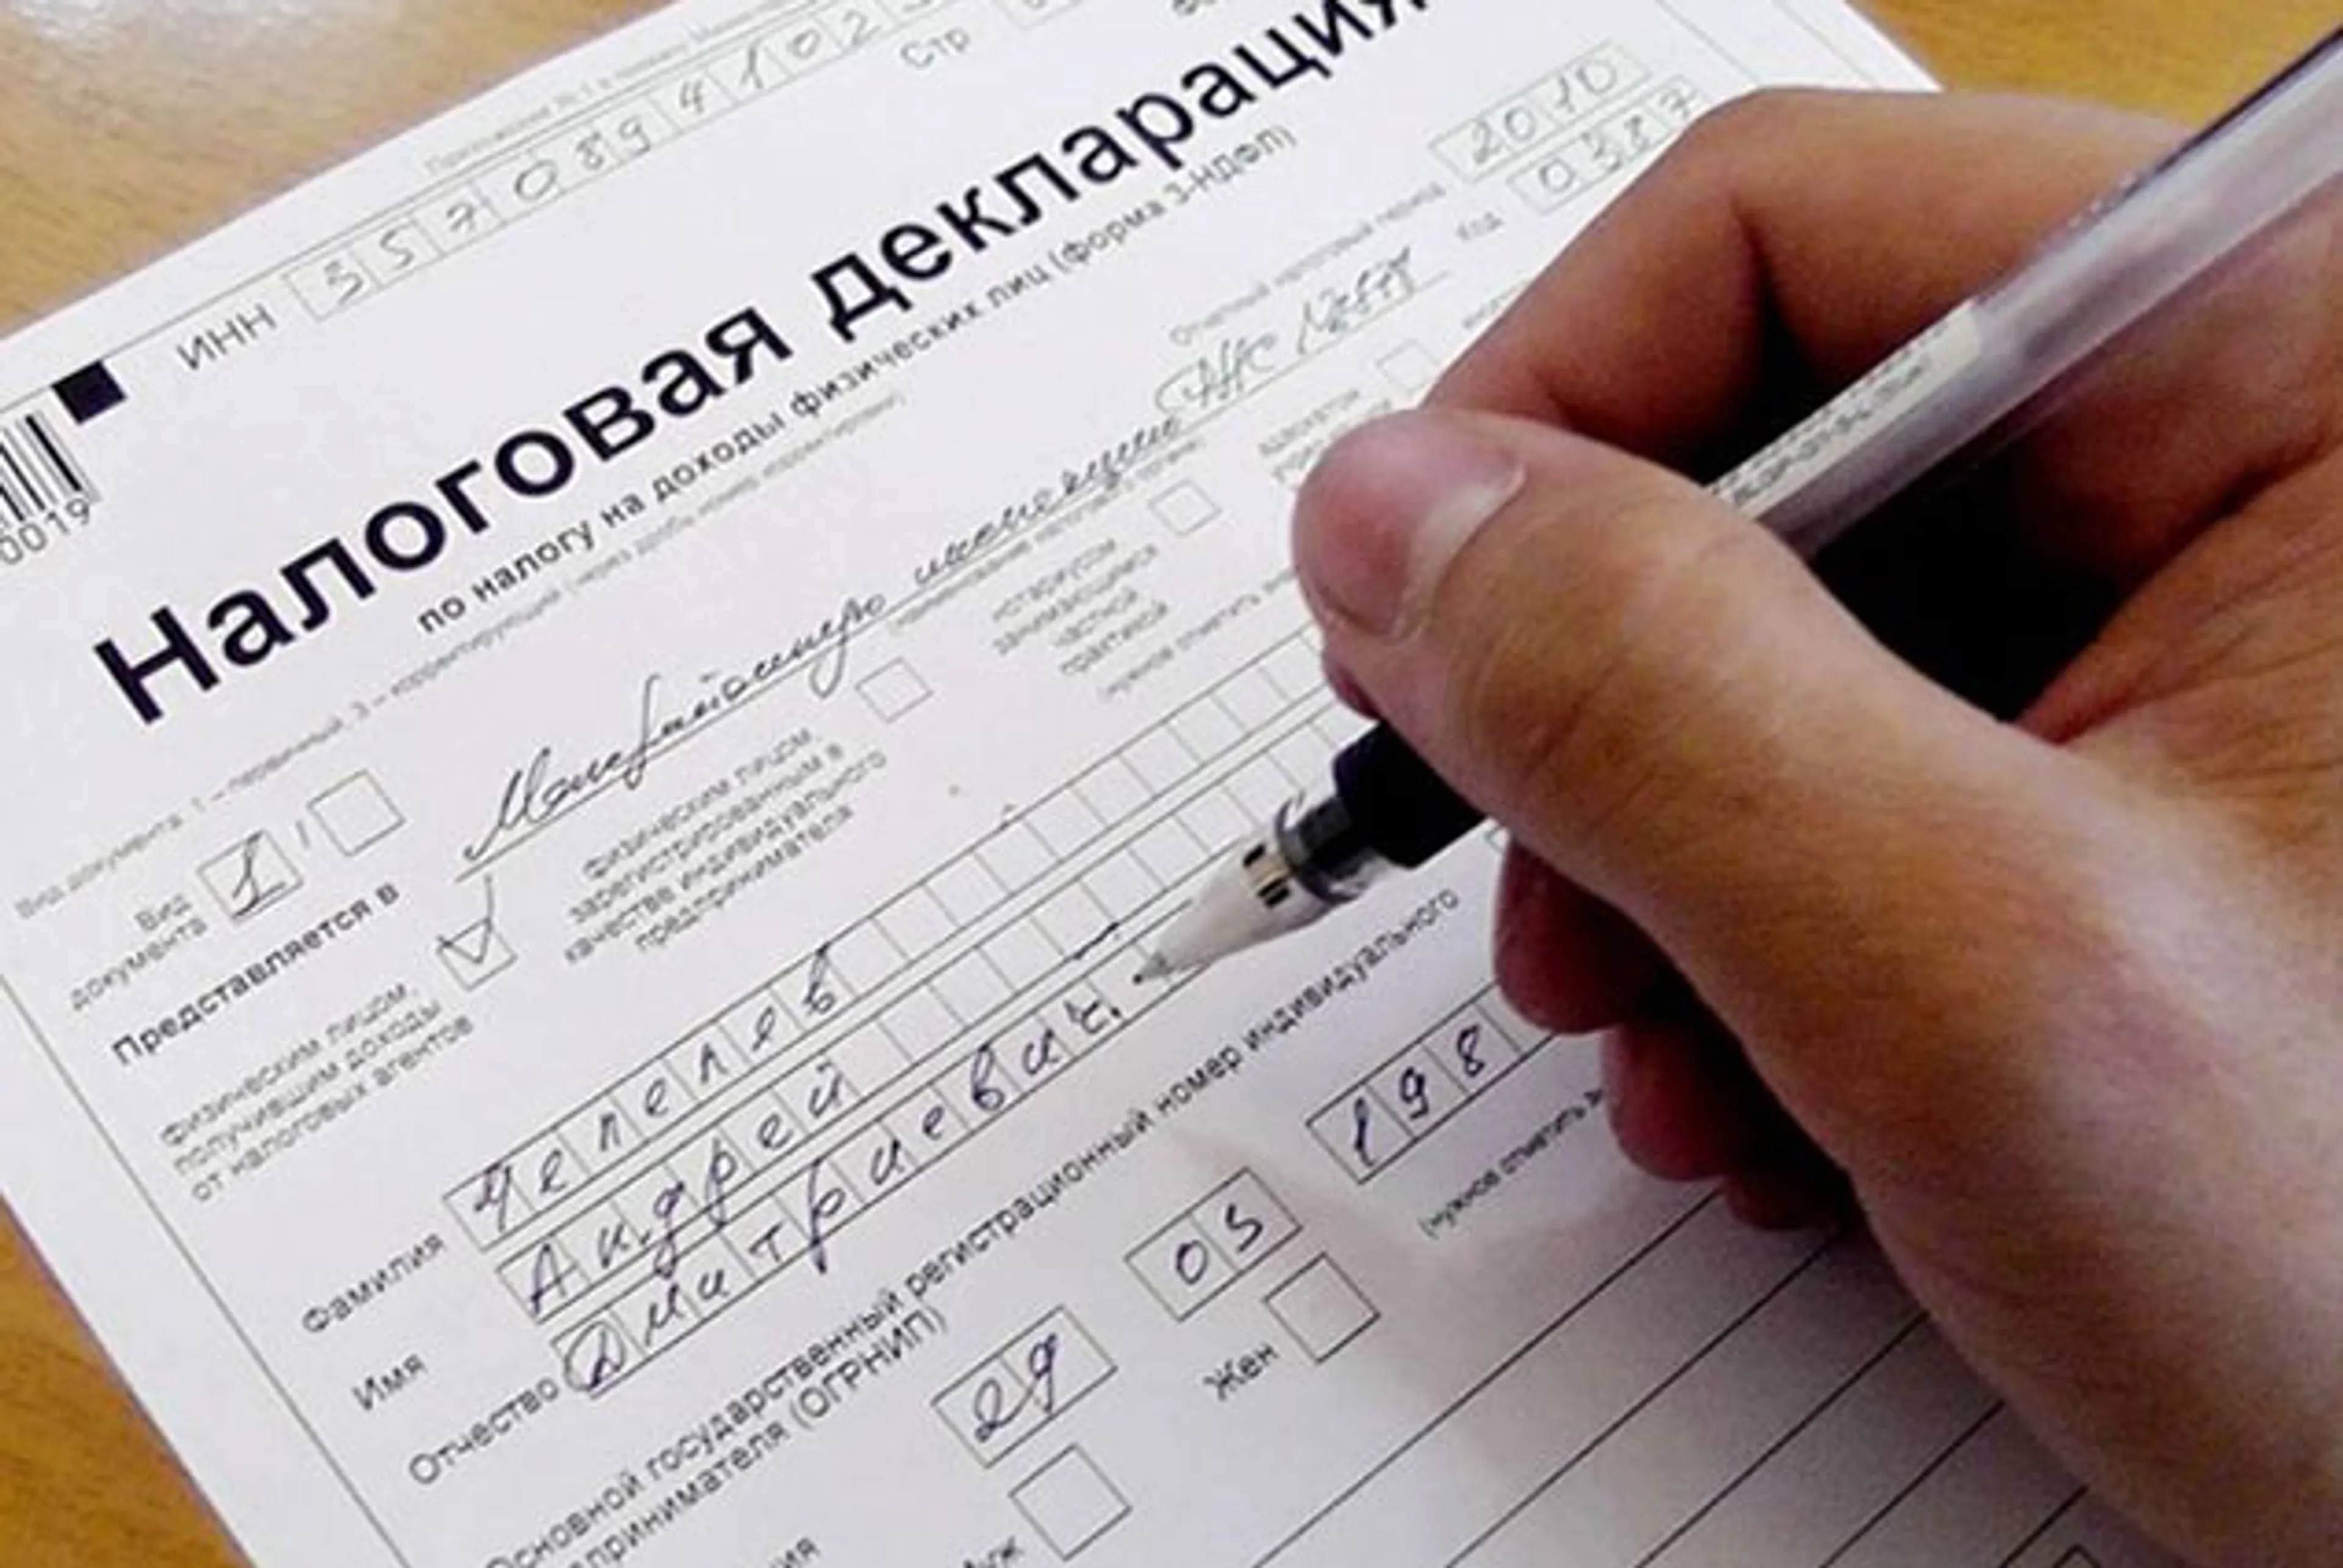 ИНН 5 5 7 0 8 9 4 1 0 2
Стр
Налоговая декларация
по налогу на доходы физических лиц (форма 3-НДФЛ)
Отчетный налоговый период 2010
Код 0387
0019
Вид документа: 1 – первичный, 3 – корректирующий (через дробь номер корректировки)
Вид документа 1 /
Представляется в Межрайонную инспекцию
физическим лицом, получившим доходы от налоговых агентов
физическим лицом, зарегистрированным в качестве индивидуального предпринимателя
нотариусом, занимающимся частной практикой
Фамилия Чепелев
Имя Андрей
Отчество Дмитриевич
Основной государственный регистрационный номер индивидуального
предпринимателя (ОГРНИП)
29 05 198
Муж Жен
(нужное отметить